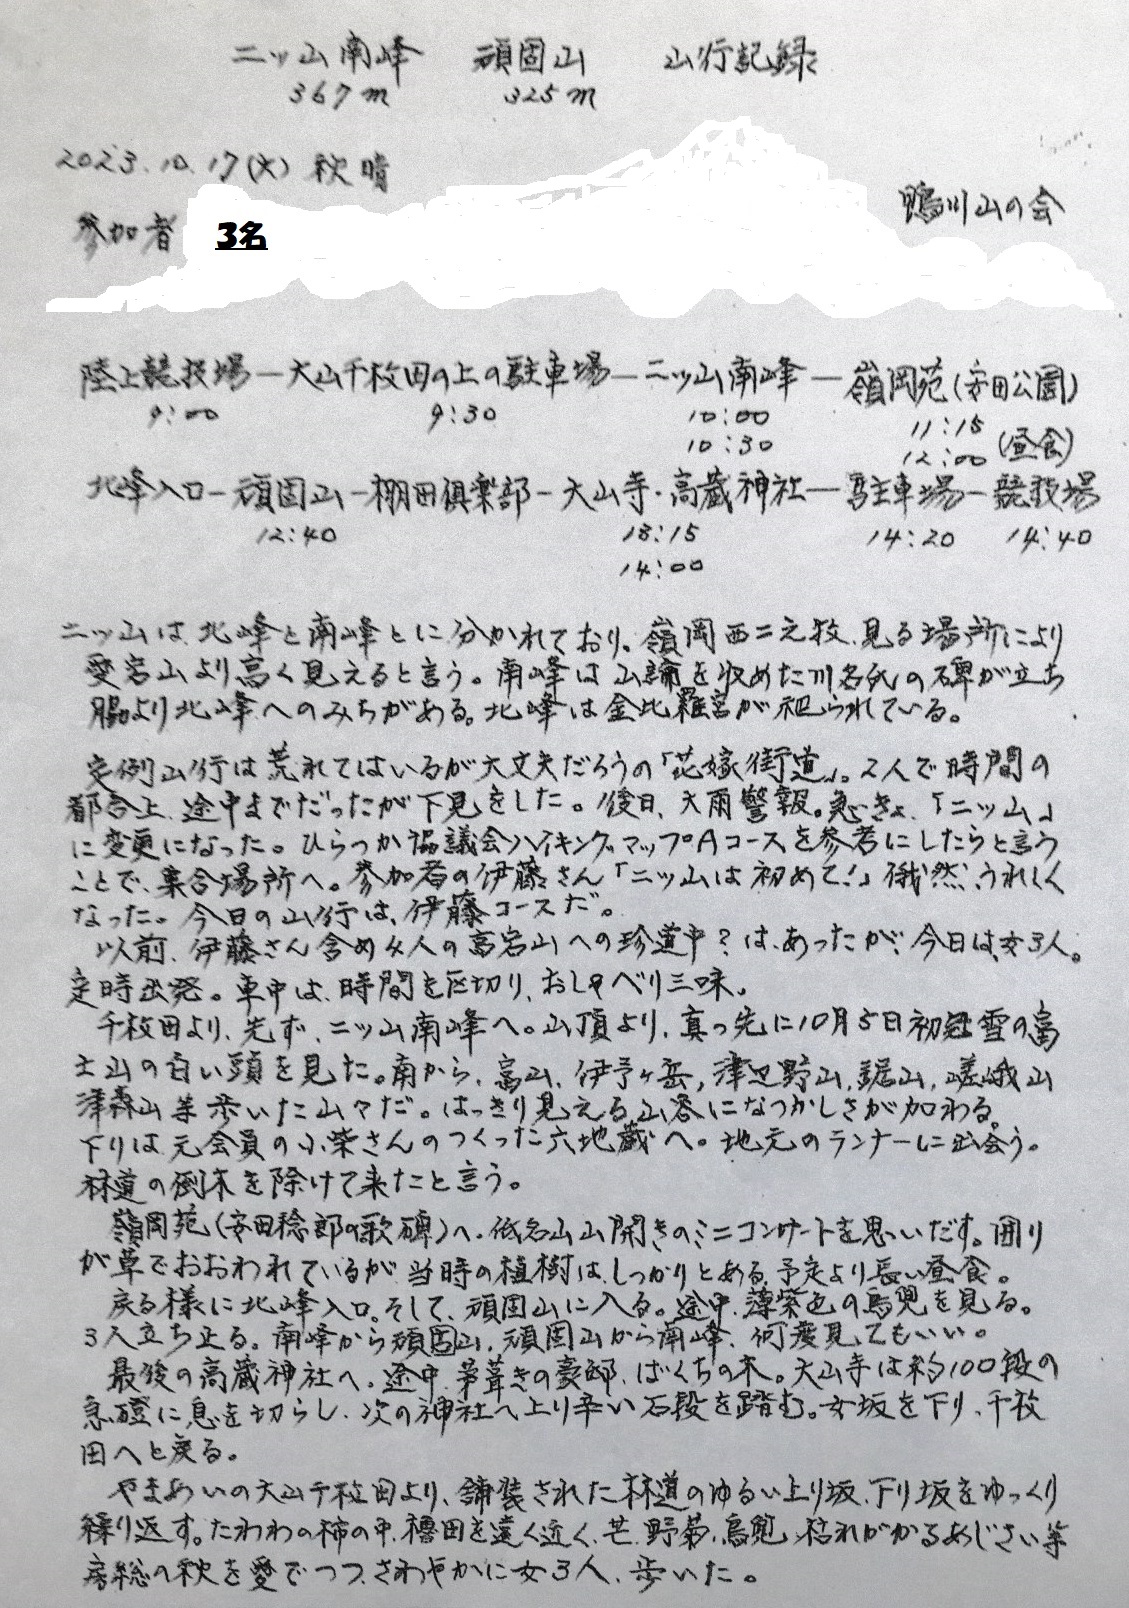 二ッ山南峰 頑固山 山行記録
367m 325m
2023.10.17(火) 秋晴
鴨川山の会
参加者 3名
陸上競技場―大山千枚田の上の駐車場―二ッ山南峰―嶺岡苑(安田公園)
9:00 9:30 10:00 11:15
10:30 12:00 (昼食)
北峰入口―頑固山―棚田倶楽部―大山寺・高蔵神社―駐車場―競技場
12:40 13:15 14:20 14:40
14:00
二ッ山は、北峰と南峰とに分かれており、嶺岡西二之牧、見る場所により
愛宕山より高く見えると言う。南峰は山論を収めた川名氏の碑が立ち
脇より北峰へのみちがある。北峰は金比羅宮が祀られている。
定例山行は荒れてはいるが大丈夫だろうの「花嫁街道」。2人で時間の
都合上、途中までだったが下見をした。後日、大雨警報。急きょ、「二ッ山」
に変更になった。ひらつか協議会ハイキングマップAコースを参考にしたらと言う
ことで、集合場所へ。参加者の伊藤さん「二ッ山は初めて!」俄然、うれしく
なった。今日の山行は、伊藤コースだ。
以前、伊藤さん含め4人の高宕山への珍道中?は、あったが、今日は、女3人。
定時出発。車中は、時間を区切り、おしゃべり三昧。
千枚田より、先ず、二ッ山南峰へ。山頂より、真っ先に10月5日初冠雪の富
士山の白い頭を見た。南から、富山、伊予ヶ岳、津辺野山、鋸山、嵯峨山
津森山等歩いた山々だ。はっきり見える山容になつかしさが加わる。
下りは元会員の小柴さんのつくった六地蔵へ。地元のランナーに出会う。
林道の倒木を除けて来たと言う。
嶺岡苑(安田稔郎の歌碑)へ。低名山山開きのミニコンサートを思いだす。囲り
が草でおおわれているが、当時の植樹は、しっかりとある。予定より長い昼食。
戻る様に北峰入口。そして、頑固山に入る。途中、薄紫色の鳥兜を見る。
3人立ち止る。南峰から頑固山、頑固山から南峰、何度見てもいい。
最後の高蔵神社へ。途中、茅葺きの豪邸、ばくちの木。大山寺は約100段の
急磴に息を切らし、次の神社へ上り辛い石段を踏む。女坂を下り、千枚
田へと戻る。
やまあいの大山千枚田より、舗装された林道のゆるい上り坂、下り坂をゆっくり
繰り返す。たわわの柿の中、櫓田を遠く近く、芒、野菊、鳥兜、枯れがかるあじさい等
房総の秋を愛でつつ、さわやかに女3人、歩いた。